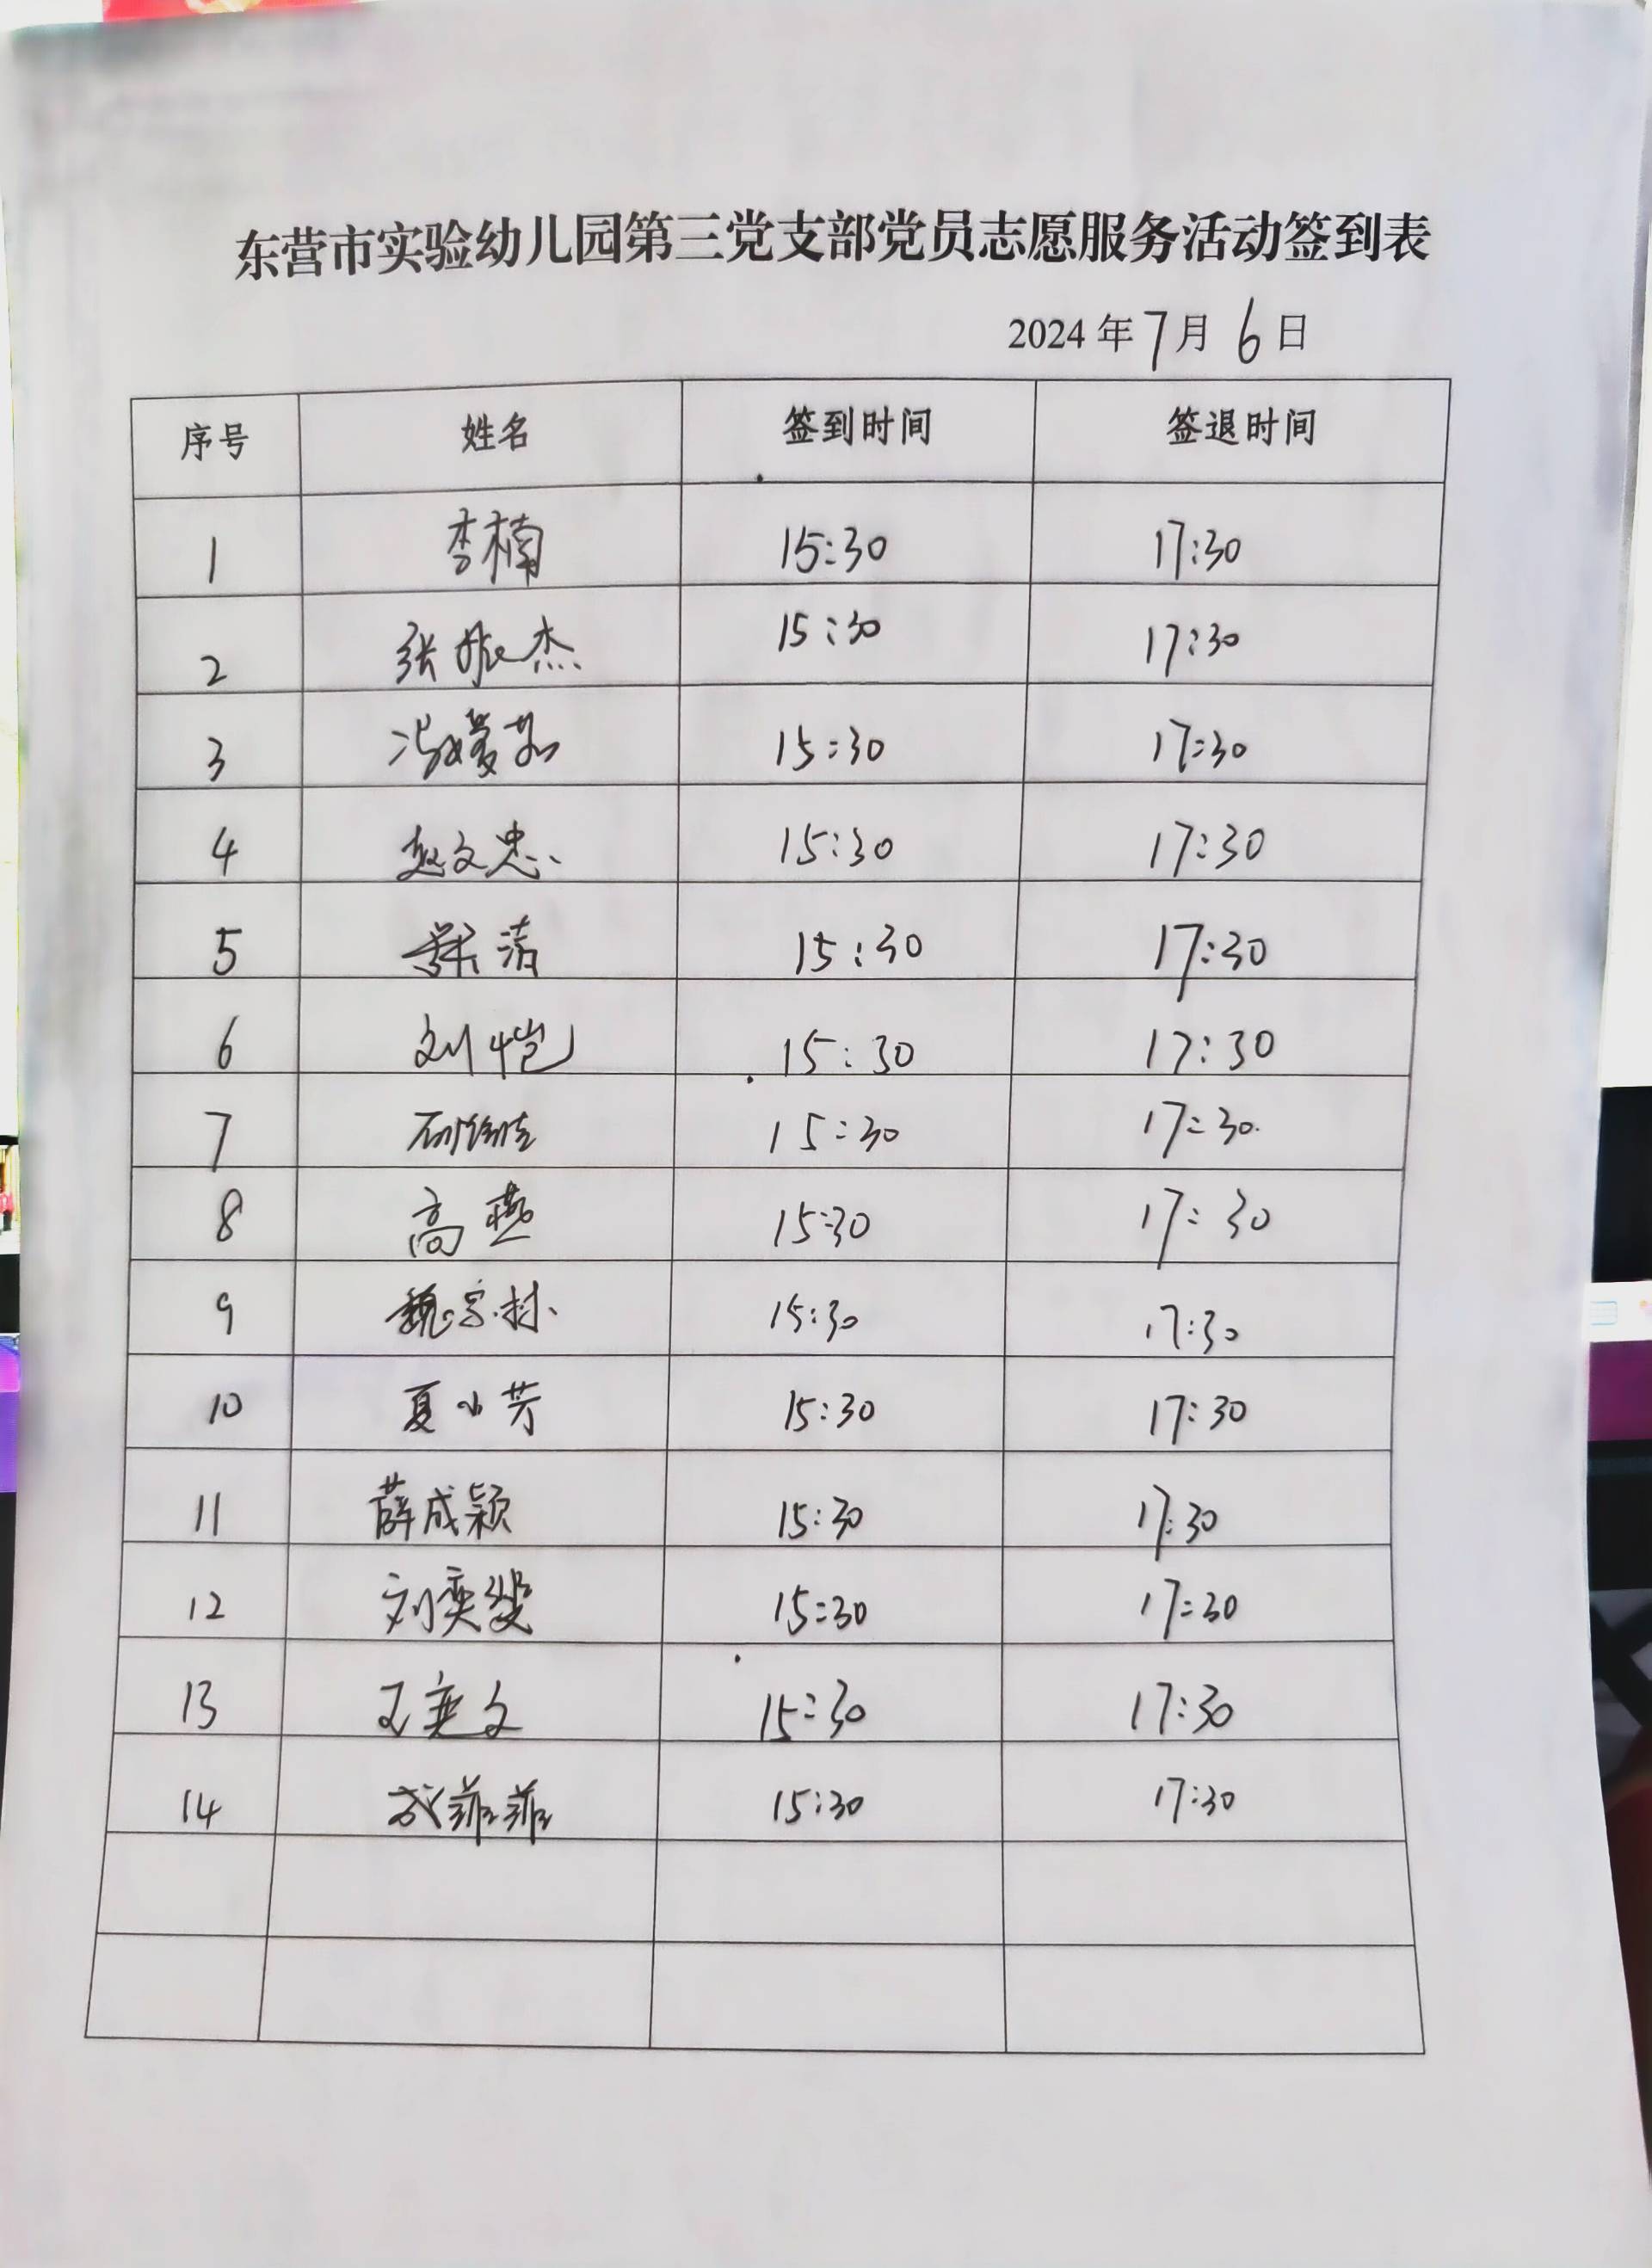 东营市实验幼儿园第三党支部党员志愿服务活动签到表
2024年7月6日
序号 姓名 签到时间 签退时间
1 李楠 15:30 17:30
2 张振杰 15:30 17:30
3 冯媛 15:30 17:30
4 赵文忠 15:30 17:30
5 清 15:30 17:30
6 刘恺 15:30 17:30
7 15:30 17:30
8 高燕 15:30 17:30
9 魏宗林 15:30 17:30
10 夏小芳 15:30 17:30
11 薛成颖 15:30 17:30
12 刘奕 15:30 17:30
13 王奕文 15:30 17:30
14 武菲菲 15:30 17:30